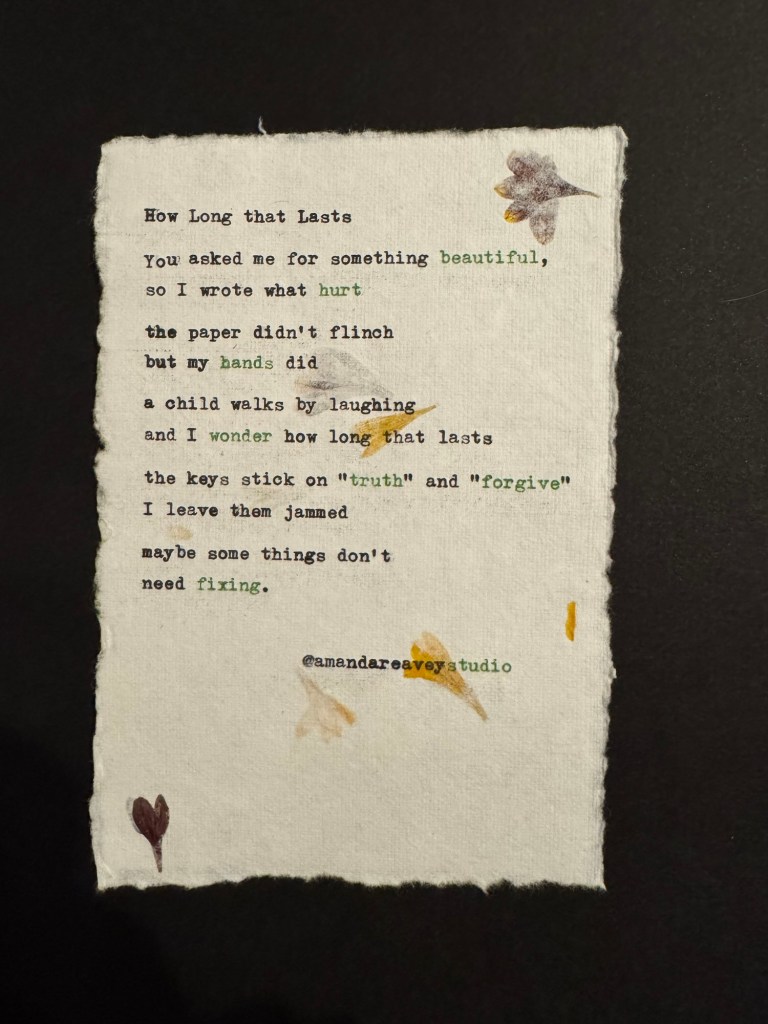 How Long that Lasts
You asked me for something beautiful,
so I wrote what hurt
the paper didn't flinch
but my hands did
a child walks by laughing
and I wonder how long that lasts
the keys stick on "truth" and "forgive"
I leave them jammed
maybe some things don't
need fixing.
@amandareaveystudio